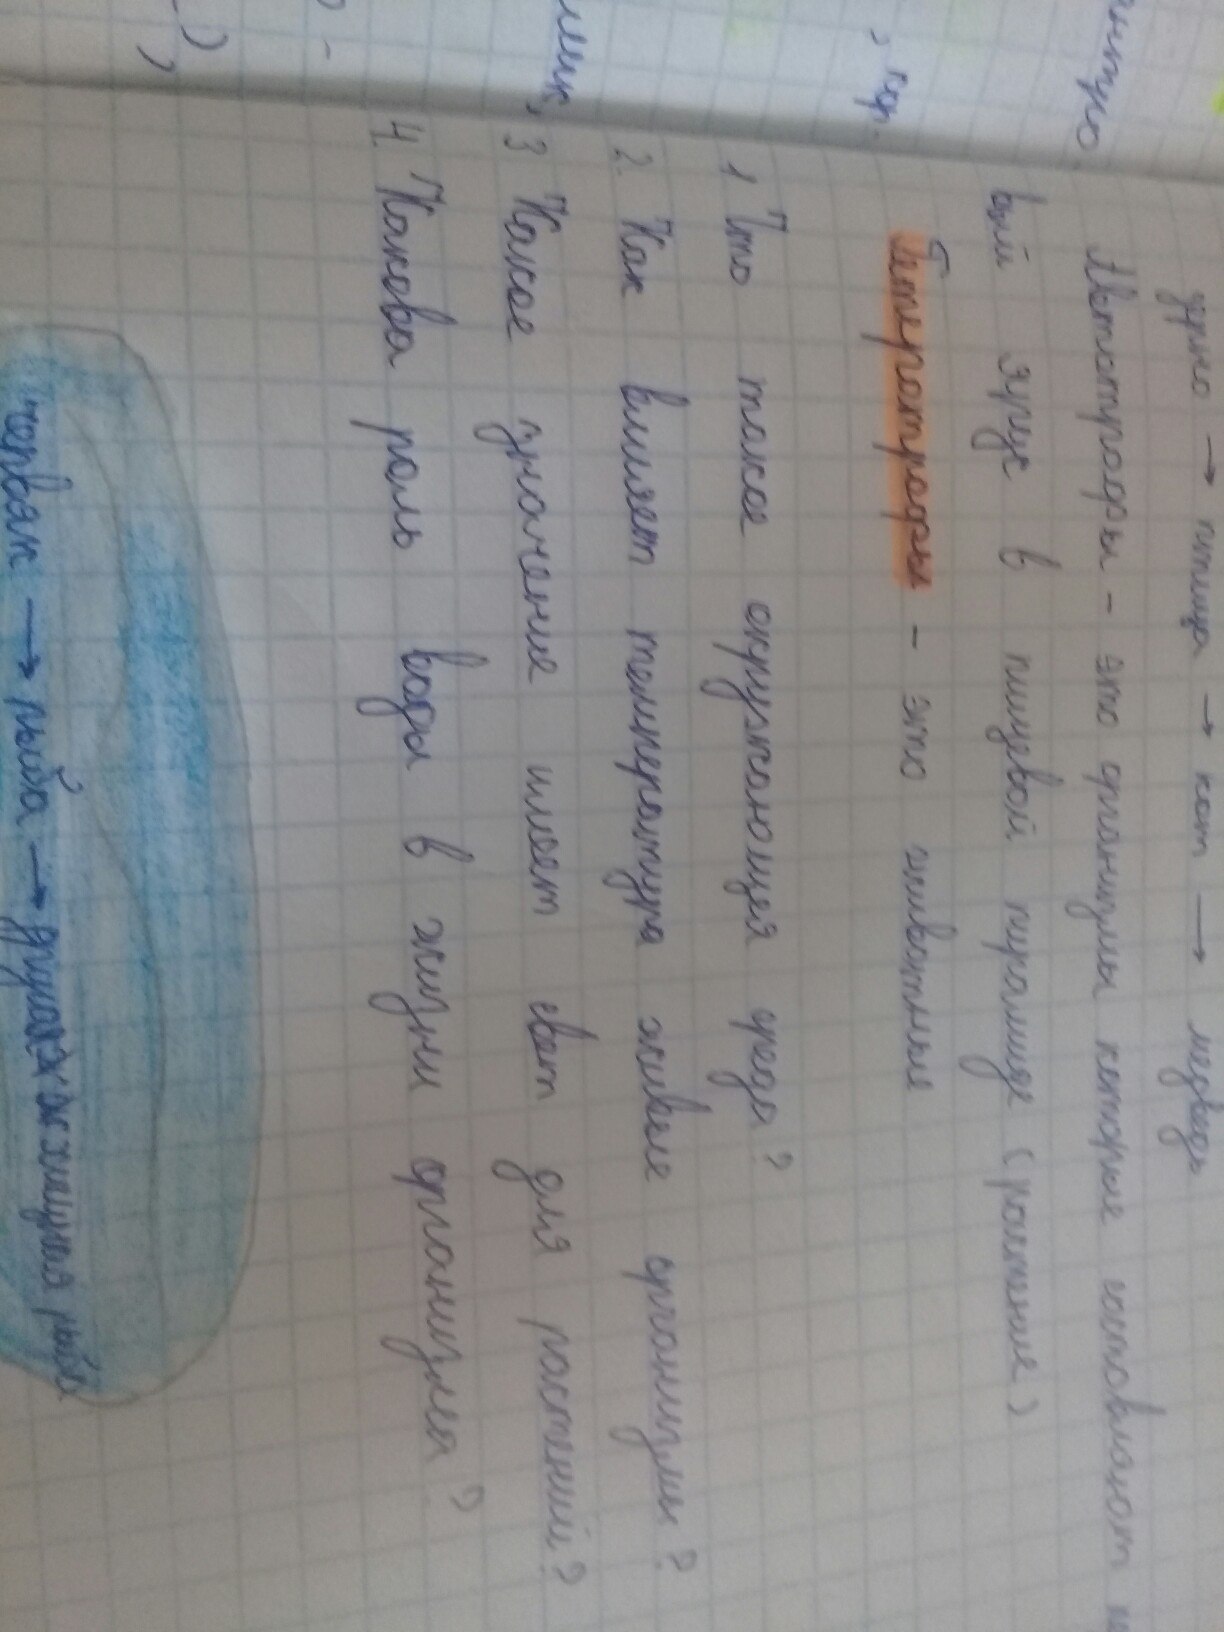 зерно → птица → кот → медведь
Автотрофы - это организмы которые составляют
вый ярус в пищевой пирамиде (растение)
Гетеротрофы - это животные
1 Что такое окружающая среда?
2. Как влияет температура живые организмы?
3 Какое значение имеет свет для растений?
4. Какова роль воды в жизни организма?
червяк → рыба → рыба